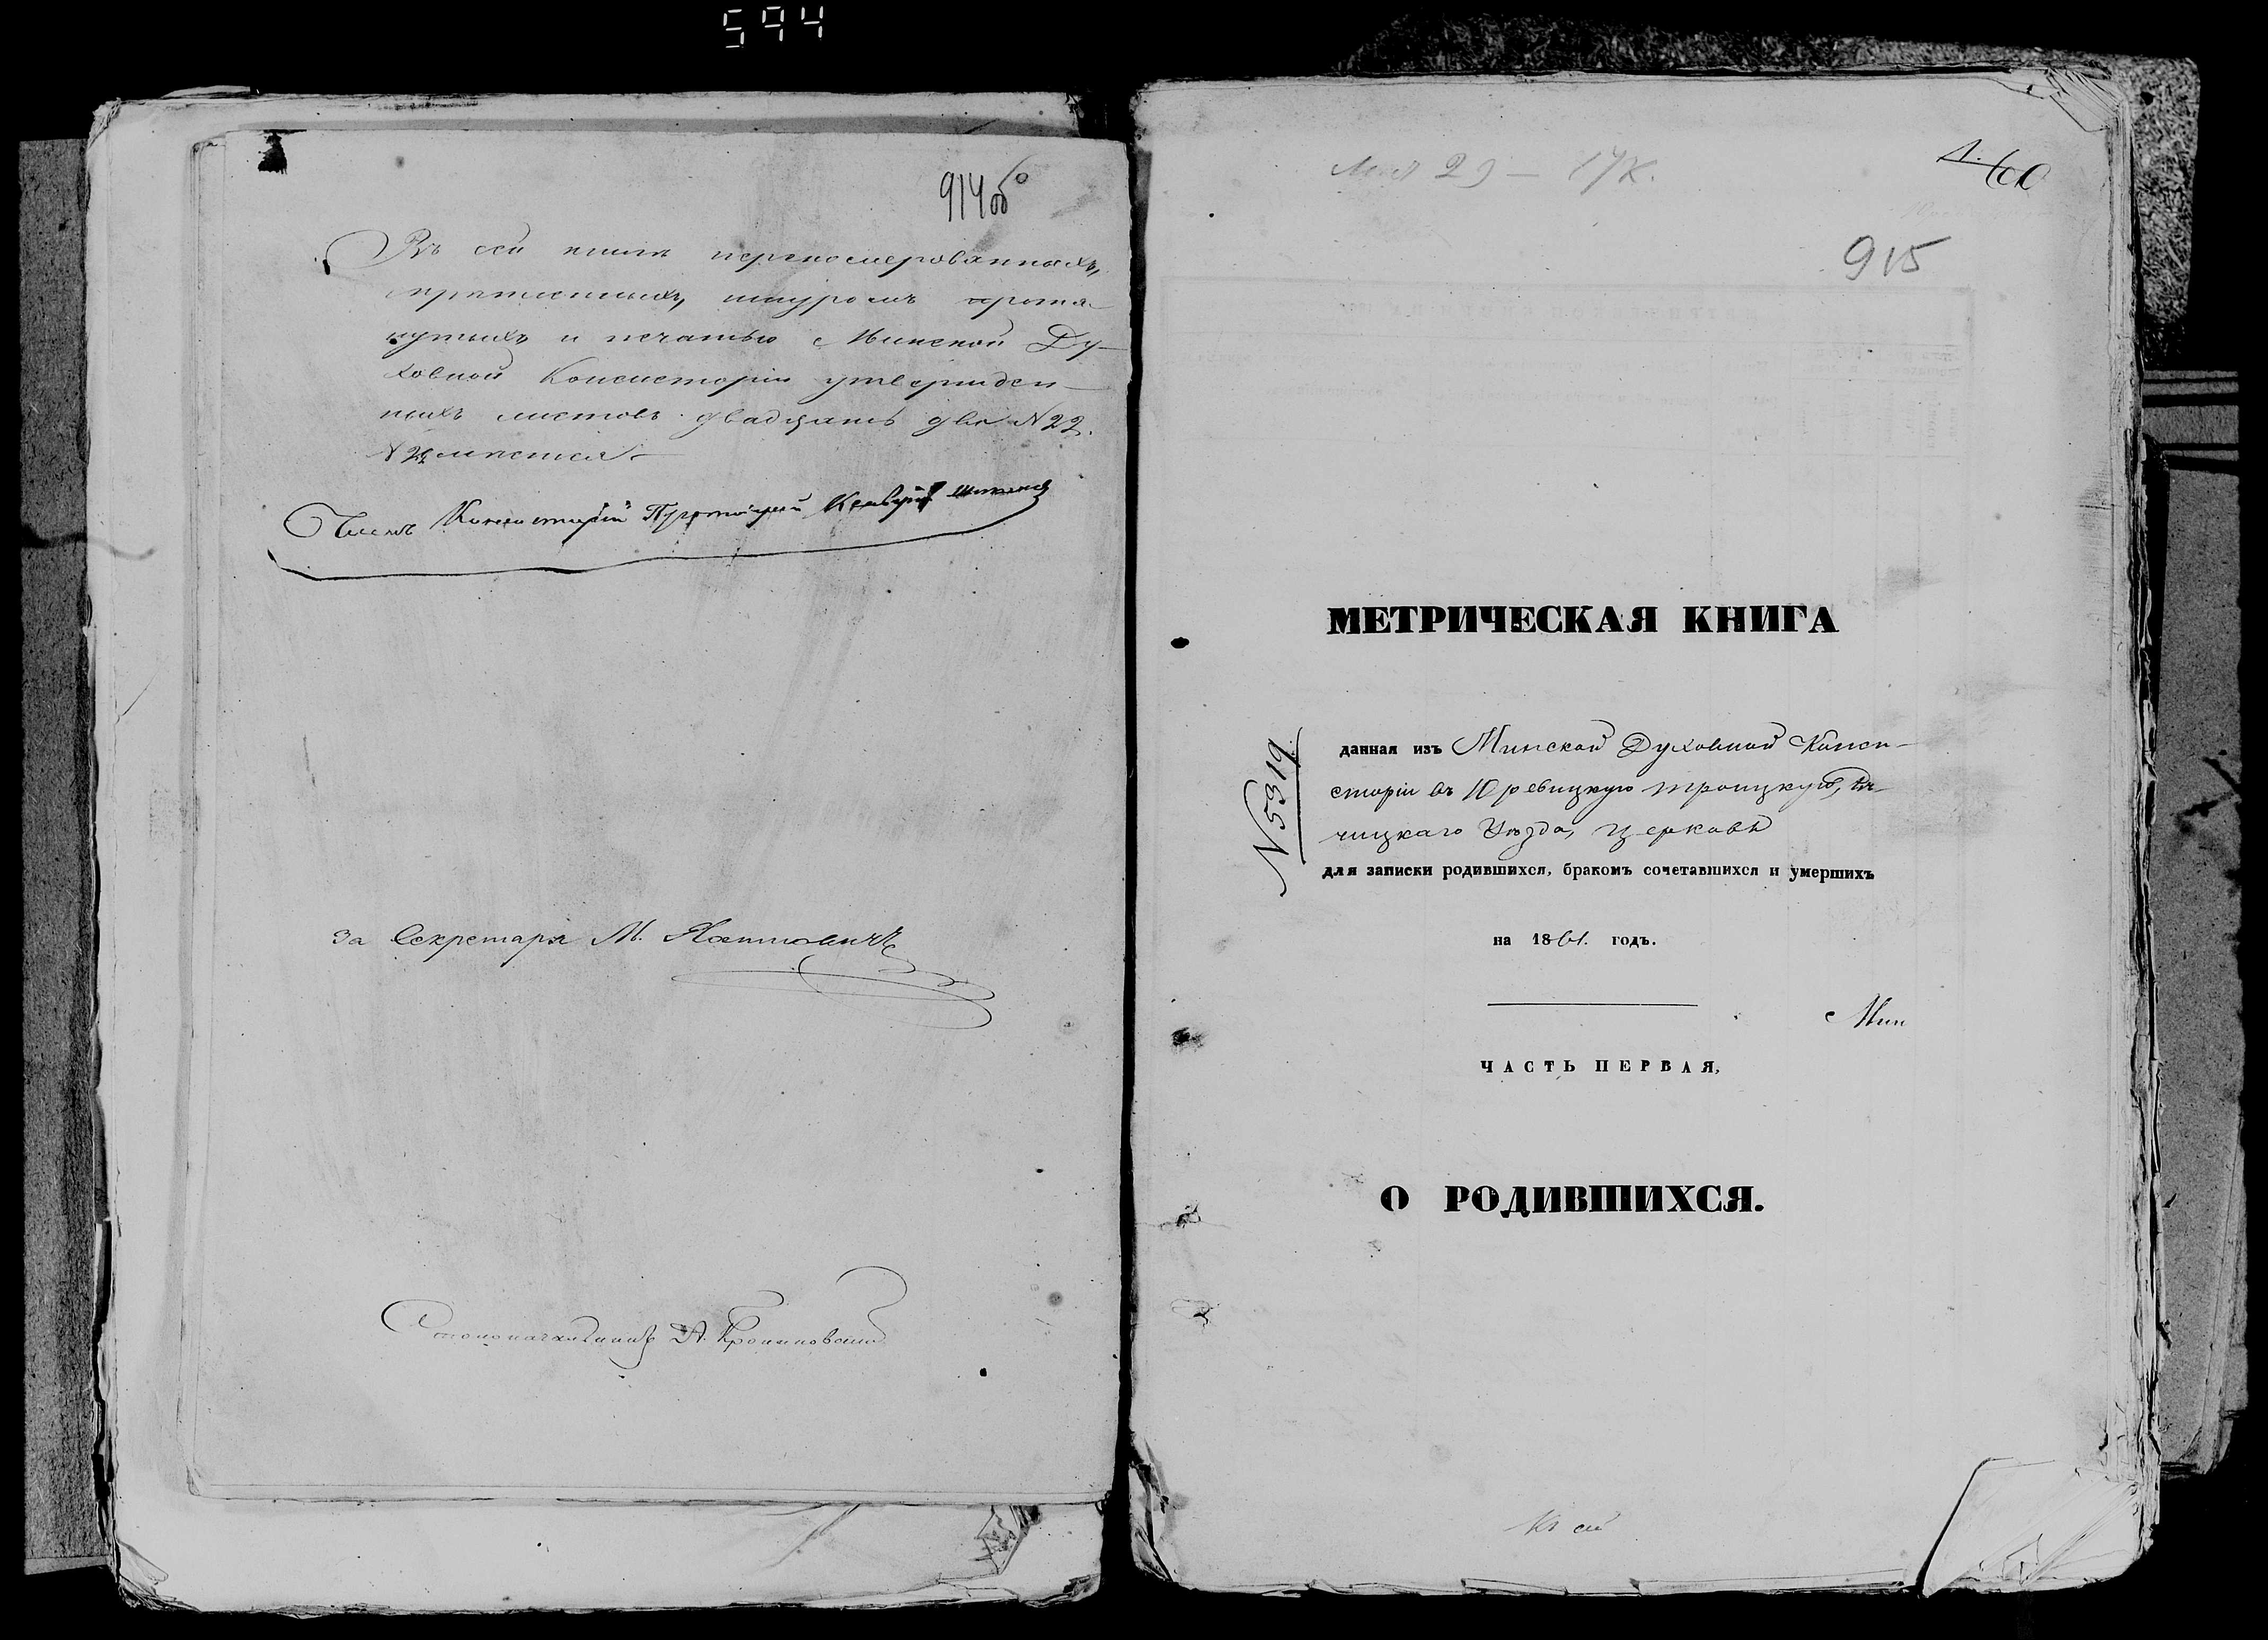 594
914об
Въ сей книгѣ перенумерованныхъ,
шнуромъ протя-
нутыхъ и печатью Минской Ду-
ховной Консисторіи утвержден-
ныхъ листовъ двадцать два N 22.
N 22 листа
Членъ Консисторіи Протоіерей
За Секретаря М.
Столоначальникъ
60
915
МЕТРИЧЕСКАЯ КНИГА
N 5319
данная изъ Минской Духовной Конси-
сторіи въ Юревицкую Троицкую, Рѣ-
чицкаго Уѣзда, Церковь
для записки родившихся, бракомъ сочетавшихся и умершихъ
на 1861. годъ.
Мин
ЧАСТЬ ПЕРВАЯ,
О РОДИВШИХСЯ.